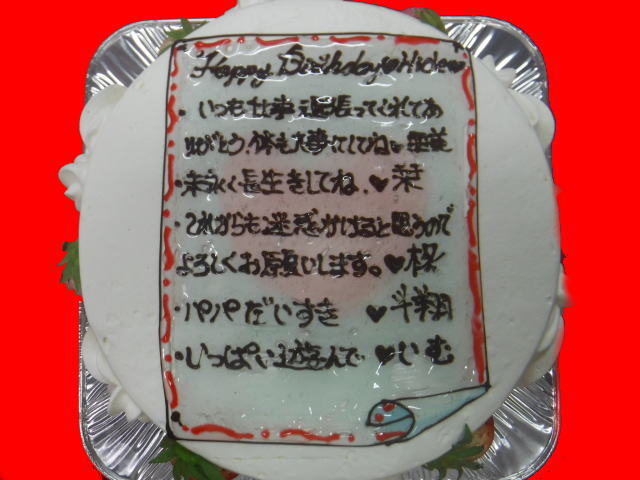 Happy Birthday♥Hide♥
・いつも仕事頑張ってくれてあ
りがとう。体も大事にしてね♥亜美
・末永く長生きしてね。♥栞
・これからも迷惑かけると思うので
よろしくお願いします。♥柊
・パパだいすき ♥斗翔
・いっぱい遊んで ♥いむ